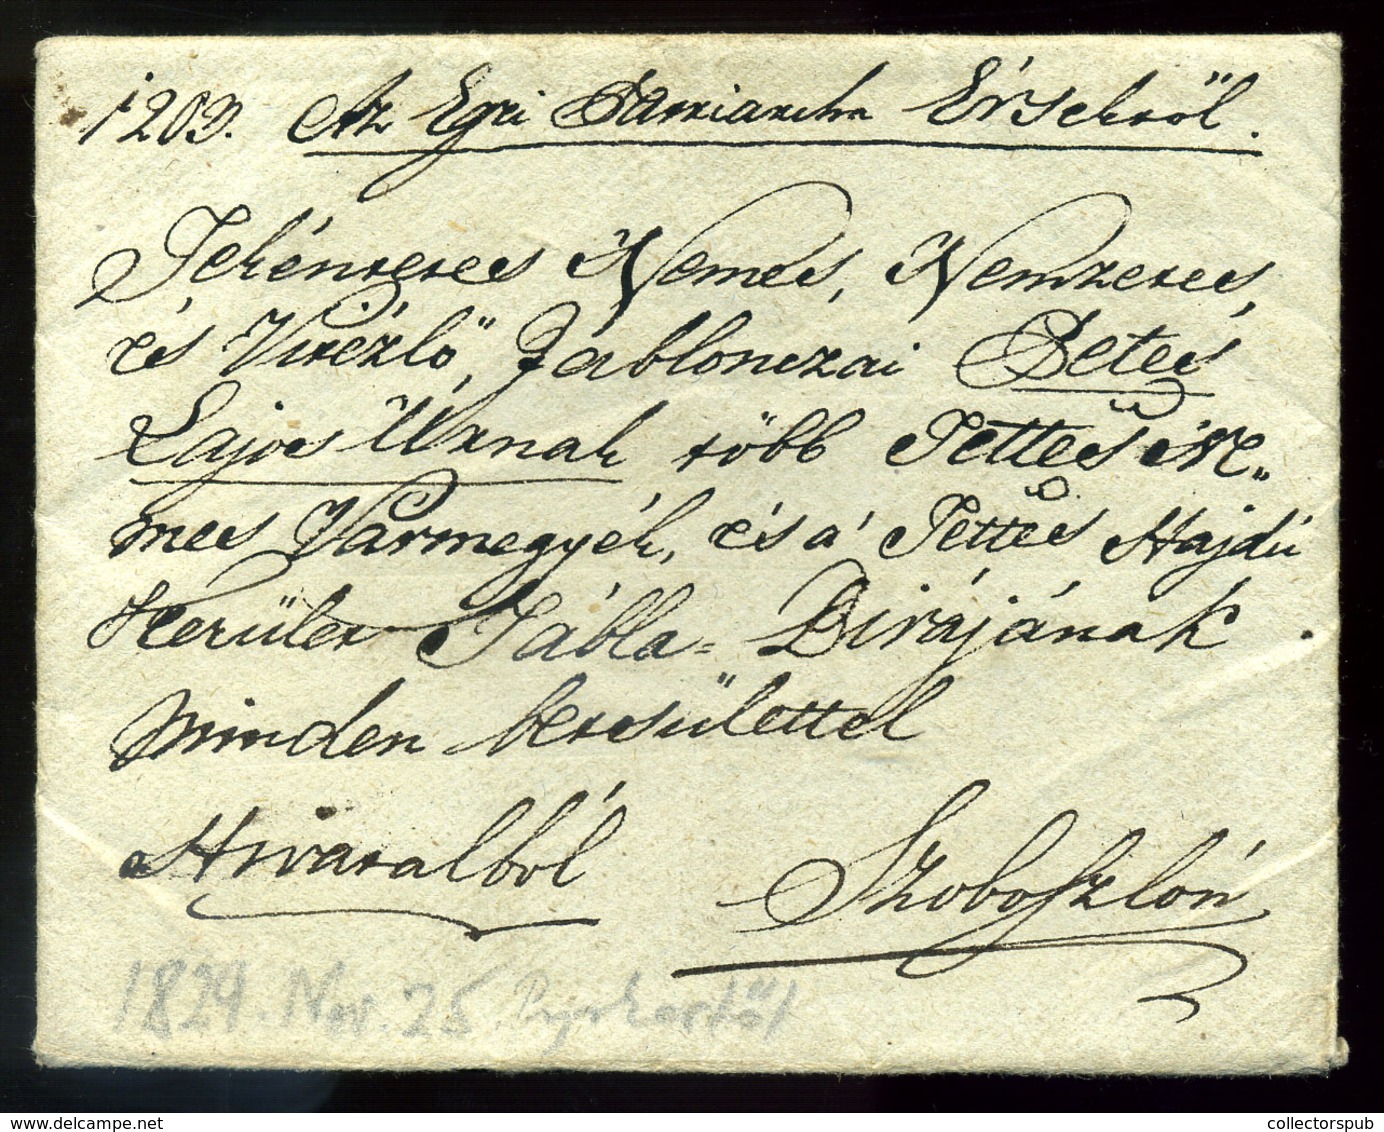 1203. Az Egri Patriarcha Érsektöl.
Tekéntetes Nemes, Nemzetes,
és Vitézlö, Jablonczai Petes
Lajos Úrnak több Tettes Ne„
mes Vármegyék, és a' Tettes Hajdú
Kerület Tábla= Birájának
minden betsülettel
Hivatalból Szoboszlón
1824. Nov. 25.
collectorspub.com